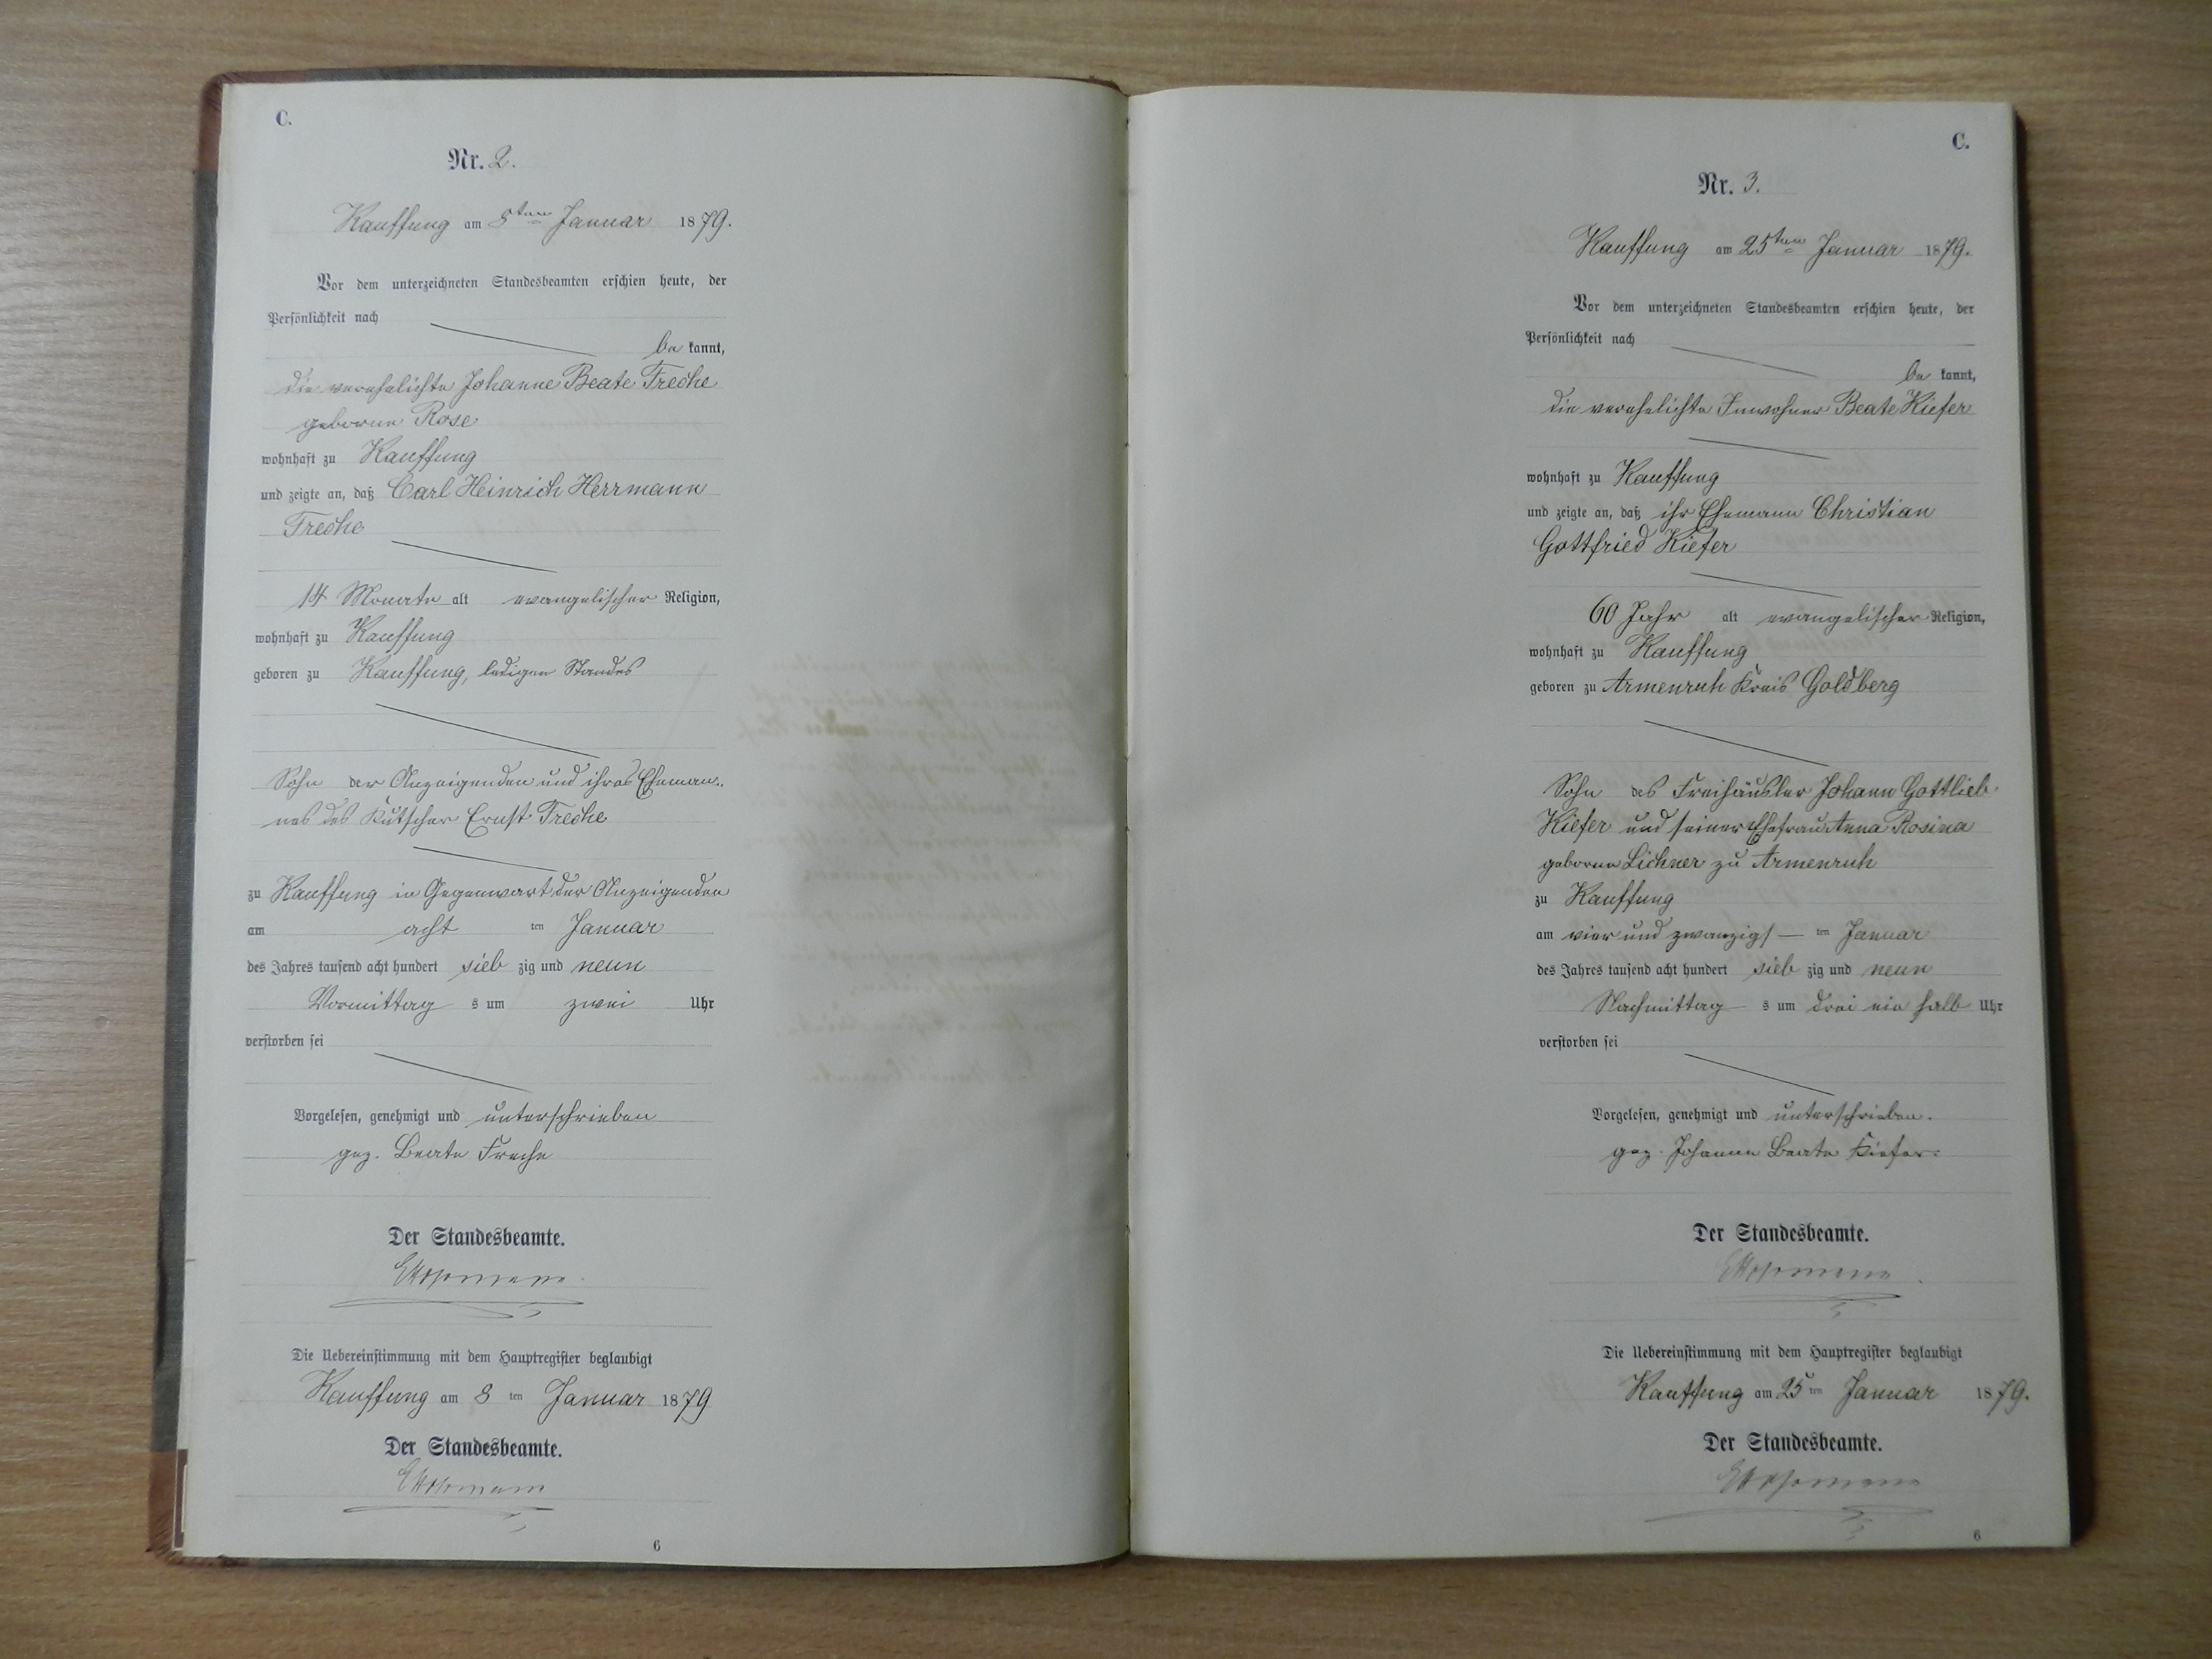 C.
Nr. 2.
Kauffung am 8ten Januar 1879.
Vor dem unterzeichneten Standesbeamten erschien heute, der
Persönlichkeit nach
be kannt,
die verehelichte Johanne Beate Freche
geborne Rose
wohnhaft zu Kauffung
und zeigte an, daß Carl Heinrich Herrmann
Freche
14 Monate alt evangelischer Religion,
wohnhaft zu Kauffung
geboren zu Kauffung, ledigen Standes
Sohn der Anzeigenden und ihres Eheman-
nes des Kutscher Ernst Freche
zu Kauffung in Gegenwart der Anzeigenden
am acht ten Januar
des Jahres tausend acht hundert sieb zig und neun
Vormittag s um zwei Uhr
verstorben sei
Vorgelesen, genehmigt und unterschrieben
gez. Beate Freche
Der Standesbeamte.
Die Uebereinstimmung mit dem Hauptregister beglaubigt
Kauffung am 8 ten Januar 1879
Der Standesbeamte.
6
C.
Nr. 3.
Kauffung am 25ten Januar 1879.
Vor dem unterzeichneten Standesbeamten erschien heute, der
Persönlichkeit nach
be kannt,
die verehelichte Inwohner Beate Kiefer
wohnhaft zu Kauffung
und zeigte an, daß ihr Ehemann Christian
Gottfried Kiefer
60 Jahr alt evangelischer Religion,
wohnhaft zu Kauffung
geboren zu Armenruh Kreis Goldberg
Sohn des Freihäusler Johann Gottlieb
Kiefer und seiner Ehefrau Anna Rosina
geborne Lichner zu Armenruh
zu Kauffung
am vier und zwanzigs ten Januar
des Jahres tausend acht hundert sieb zig und neun
Nachmittag s um drei ein halb Uhr
verstorben sei
Vorgelesen, genehmigt und unterschrieben.
gez. Johanne Beate Kiefer.
Der Standesbeamte.
Die Uebereinstimmung mit dem Hauptregister beglaubigt
Kauffung am 25 ten Januar 1879.
Der Standesbeamte.
6